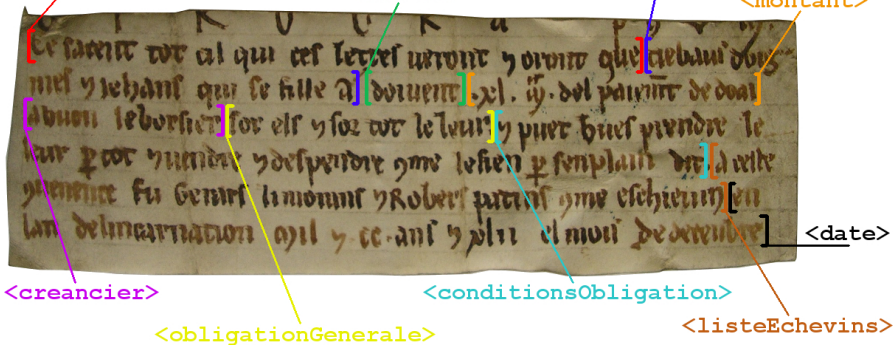 <montant>
Ce sacent tot cil qui ces letres veront ⁊ oront que tiebaus
mes ⁊ jehans qui se fille a doivent xl. del paiement de doai
a huon le borsier sor els ⁊ sor tot le leur ⁊ puet hues prendre le
leur p tot ⁊ vendre ⁊ despendre 9me le sien p sen plain dit a celle
9venence fu Gerars li moinns ⁊ Robers patins 9me eschievin en
lan de lincarnation mil ⁊ .cc. ans ⁊ xlii el mois de decenbre
<date>
<creancier>
<conditionsObligation>
<listeEchevins>
<obligationGenerale>